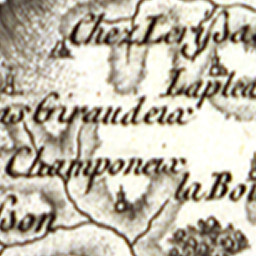 Chez Lerÿsa
Laplea
is Giraudeix
Champoneix
la Boi
sson